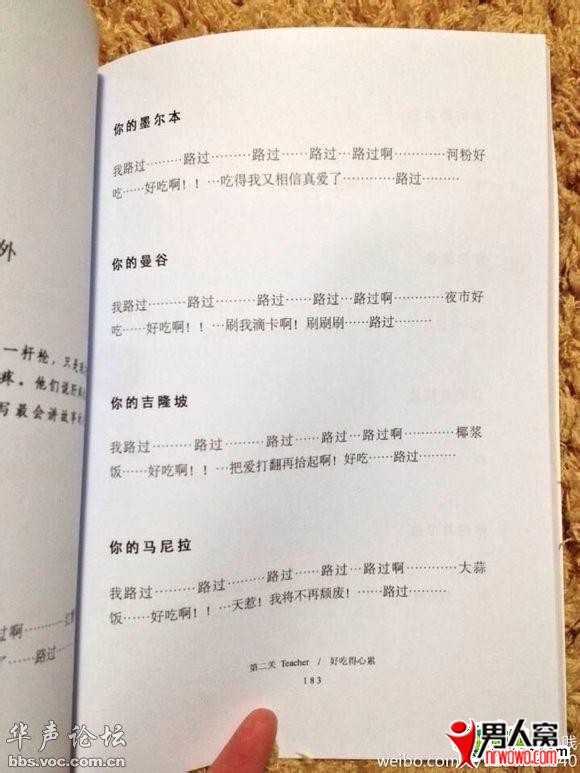 你的墨尔本
我路过………路过………路过……路过…路过啊…………河粉好
吃……好吃啊！！…吃得我又相信真爱了…………路过………
你的曼谷
我路过………路过………路过……路过…路过啊…………夜市好
吃……好吃啊！！…刷我滴卡啊！刷刷刷……路过………
你的吉隆坡
我路过………路过………路过……路过…路过啊…………椰浆
饭……好吃啊！！…把爱打翻再拾起啊！好吃……路过………
你的马尼拉
我路过………路过………路过……路过…路过啊…………大蒜
饭……好吃啊！！…天惹！我将不再颓废！……路过………
第二关 Teacher / 好吃得心累
183
外
一杆枪，只是
疼。他们说肝
写最会讲故事
过啊………
了……路过
华声论坛
bbs.voc.com.cn
男人窝
weibo.com/